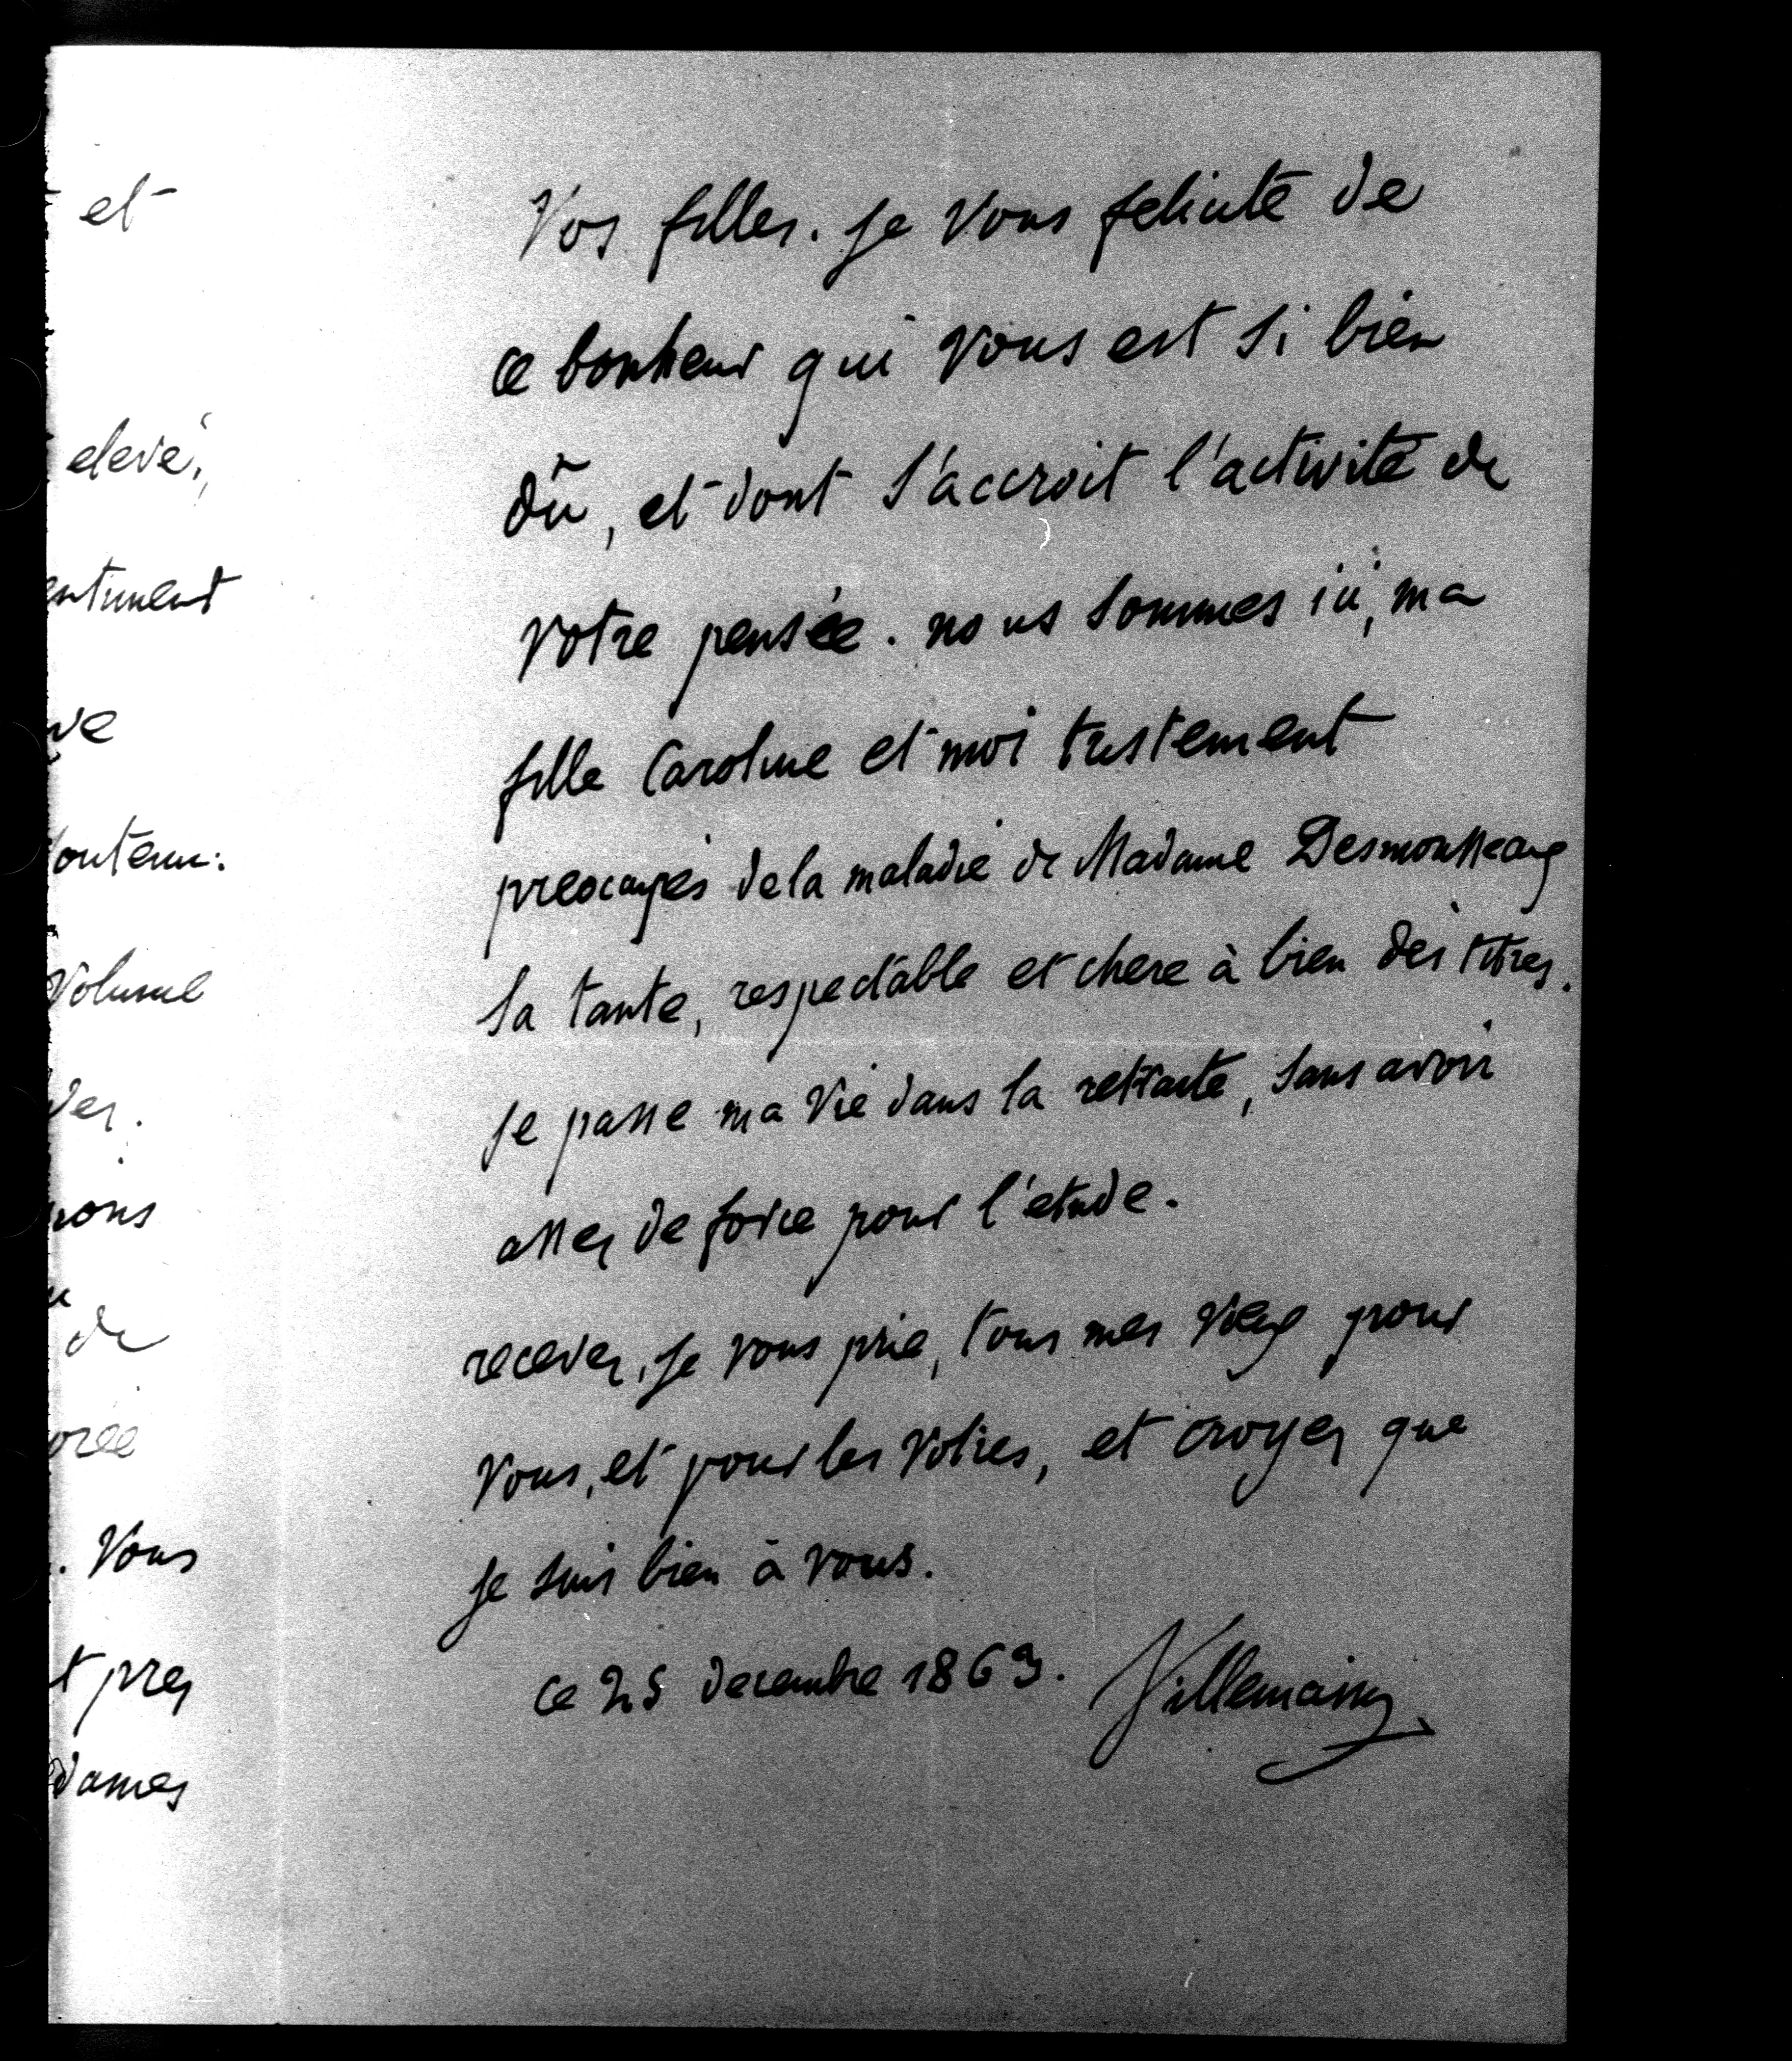 et
elevé,
entiment
ve
outenu.
volume
des.
nons
de
orée
. Vous
t pres
dames
Vos filles. je vous felicite de
ce bonheur qui vous est si bien
dû, et dont s'accroit l'activité de
votre pensée. nous sommes ici, ma
fille Caroline et moi tristement
préocupés de la maladie de Madame Desmousseaux
sa tante, respectable et chere à bien des titres.
je passe ma vie dans la retraite, sans avoir
assez de force pour l'etude.
recevez, je vous prie, tous mes vœux pour
vous, et pour les votres, et croyez que
je suis bien à vous.
ce 25 decembre 1863. Villemain